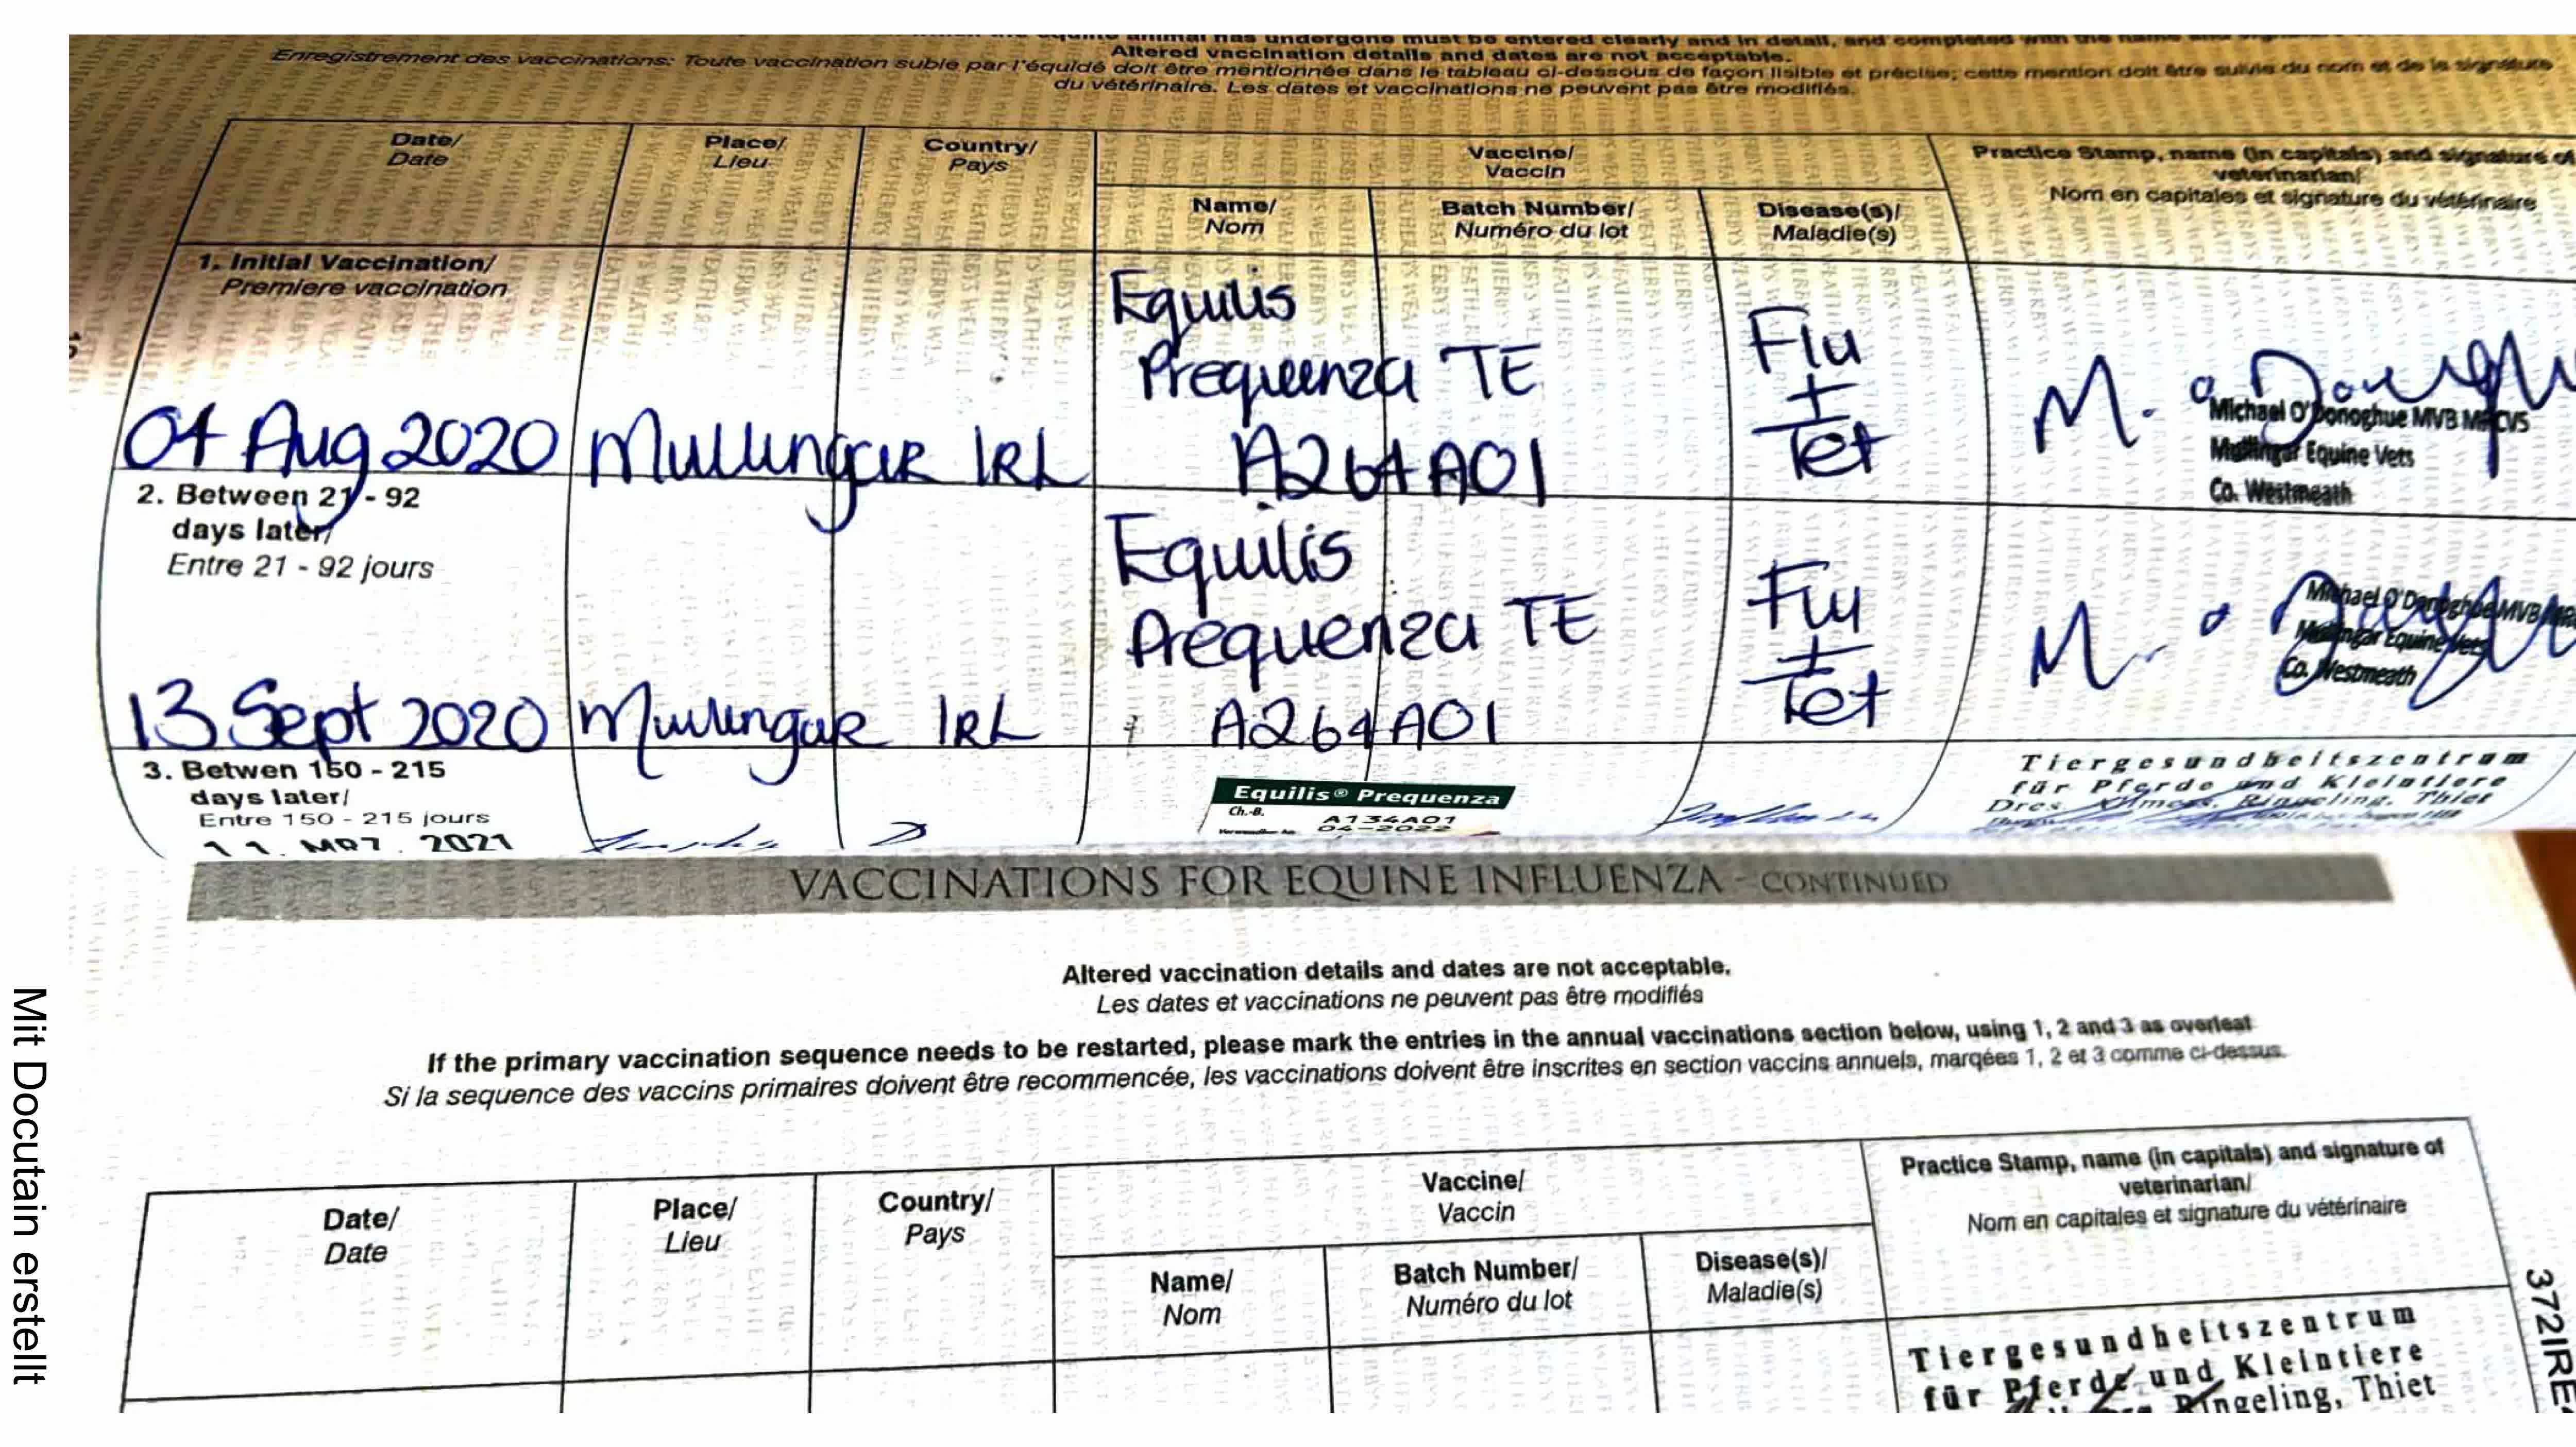 Altered vaccination details and dates are not acceptable.
Enregistrement des vaccinations: Toute vaccination subie par l'équidé doit être mentionnée dans le tableau ci-dessous de façon lisible et précise; cette mention doit être suivie du nom et de la signature
du vétérinaire. Les dates et vaccinations ne peuvent pas être modifiés.
Date/
Date
Place/
Lieu
Country/
Pays
Vaccine/
Vaccin
Name/
Nom
Batch Number/
Numéro du lot
Disease(s)/
Maladie(s)
Practice Stamp, name (in capitals) and signature of
veterinarian/
Nom en capitales et signature du vétérinaire
1. Initial Vaccination/
Premiere vaccination
04 Aug 2020 Mullingar IRL
Equilis
Prequenza TE
A264A01
Flu
+
Tet
Michael O'Donoghue MVB MRCVS
Mullingar Equine Vets
Co. Westmeath
2. Between 21 - 92
days later/
Entre 21 - 92 jours
13 Sept 2020 Mullingar IRL
Equilis
Prequenza TE
A264A01
Flu
+
Tet
Michael O'Donoghue MVB
Mullingar Equine Vets
Co. Westmeath
3. Betwen 150 - 215
days later/
Entre 150 - 215 jours
11. MRZ. 2021
D
Equilis® Prequenza
Ch.-B.
A134A01
04-2022
Tiergesundheitszentrum
für Pferde und Kleintiere
Dres. Ringeling, Thiet
VACCINATIONS FOR EQUINE INFLUENZA - CONTINUED
Altered vaccination details and dates are not acceptable.
Les dates et vaccinations ne peuvent pas être modifiés
If the primary vaccination sequence needs to be restarted, please mark the entries in the annual vaccinations section below, using 1, 2 and 3 as overleaf
Si la sequence des vaccins primaires doivent être recommencée, les vaccinations doivent être inscrites en section vaccins annuels, marqées 1, 2 et 3 comme ci-dessus.
Date/
Date
Place/
Lieu
Country/
Pays
Vaccine/
Vaccin
Name/
Nom
Batch Number/
Numéro du lot
Disease(s)/
Maladie(s)
Practice Stamp, name (in capitals) and signature of
veterinarian/
Nom en capitales et signature du vétérinaire
Tiergesundheitszentrum
für Pferde und Kleintiere
Ringeling, Thiet
372IRE
Mit Docutain erstellt